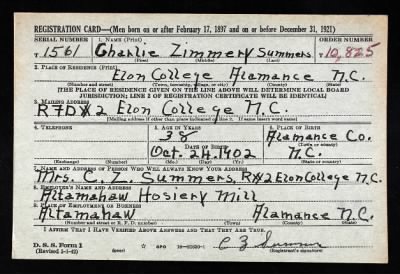 REGISTRATION CARD—(Men born on or after February 17, 1897 and on or before December 31, 1921)
SERIAL NUMBER 1. NAME (Print) ORDER NUMBER
T. 1561 Charlie Zimmery Summers T 10,825
(First) (Middle) (Last)
2. PLACE OF RESIDENCE (Print)
Elon College Alamance N.C.
(Number and street) (Town, township, village, or city) (County) (State)
[THE PLACE OF RESIDENCE GIVEN ON THE LINE ABOVE WILL DETERMINE LOCAL BOARD
JURISDICTION; LINE 2 OF REGISTRATION CERTIFICATE WILL BE IDENTICAL]
3. MAILING ADDRESS
RFD#2 Elon College N.C.
[Mailing address if other than place indicated on line 2. If same insert word same]
4. TELEPHONE 5. AGE IN YEARS 6. PLACE OF BIRTH
Alamance Co.
DATE OF BIRTH (Town or county)
Oct. 24, 1902 N.C.
(Exchange) (Number) (Mo.) (Day) (Yr.) (State or country)
7. NAME AND ADDRESS OF PERSON WHO WILL ALWAYS KNOW YOUR ADDRESS
Mrs. C. Z. Summers, R#2 Elon College N.C.
8. EMPLOYER'S NAME AND ADDRESS
Altamahaw Hosiery Mill
9. PLACE OF EMPLOYMENT OR BUSINESS
Altamahaw Alamance N.C.
(Number and street or R. F. D. number) (Town) (County) (State)
I AFFIRM THAT I HAVE VERIFIED ABOVE ANSWERS AND THAT THEY ARE TRUE.
D. S. S. Form 1
(Revised 1-1-42) (over) GPO C Z Summers
(Registrant's signature)